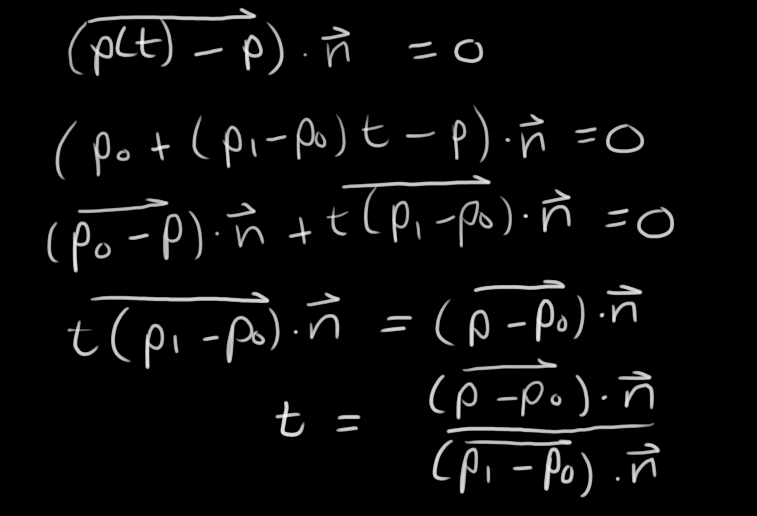 (p(t) − p) · n⃗ = 0
(p₀ + (p₁−p₀)t − p) · n⃗ = 0
(p₀−p) · n⃗ + t(p₁−p₀) · n⃗ = 0
t(p₁−p₀) · n⃗ = (p−p₀) · n⃗
t = (p−p₀) · n⃗ / (p₁−p₀) · n⃗